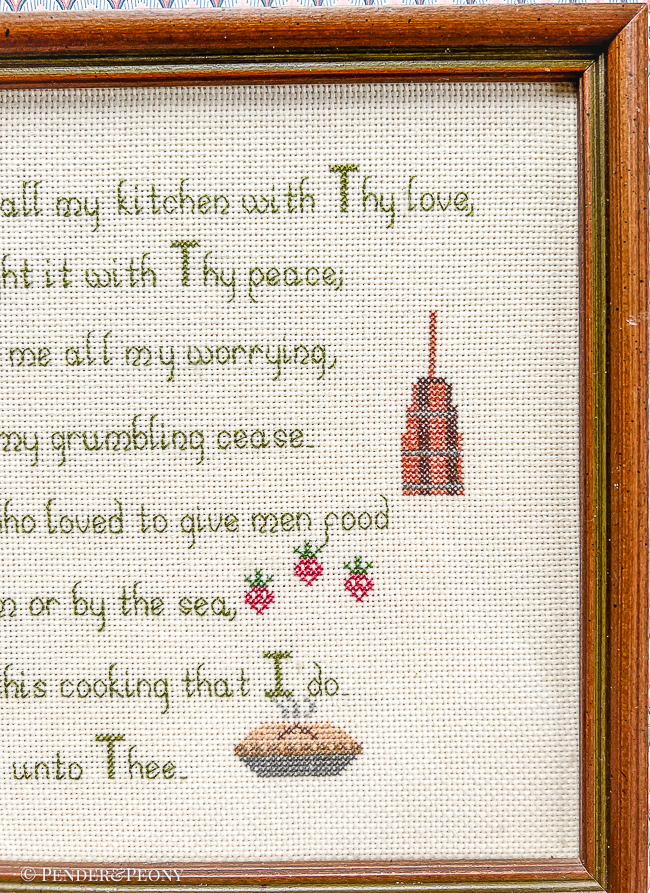 all my kitchen with Thy love,
ht it with Thy peace;
me all my worrying,
my grumbling cease.
ho loved to give men food
or by the sea,
this cooking that I do
unto Thee.
© PENDER&PEONY